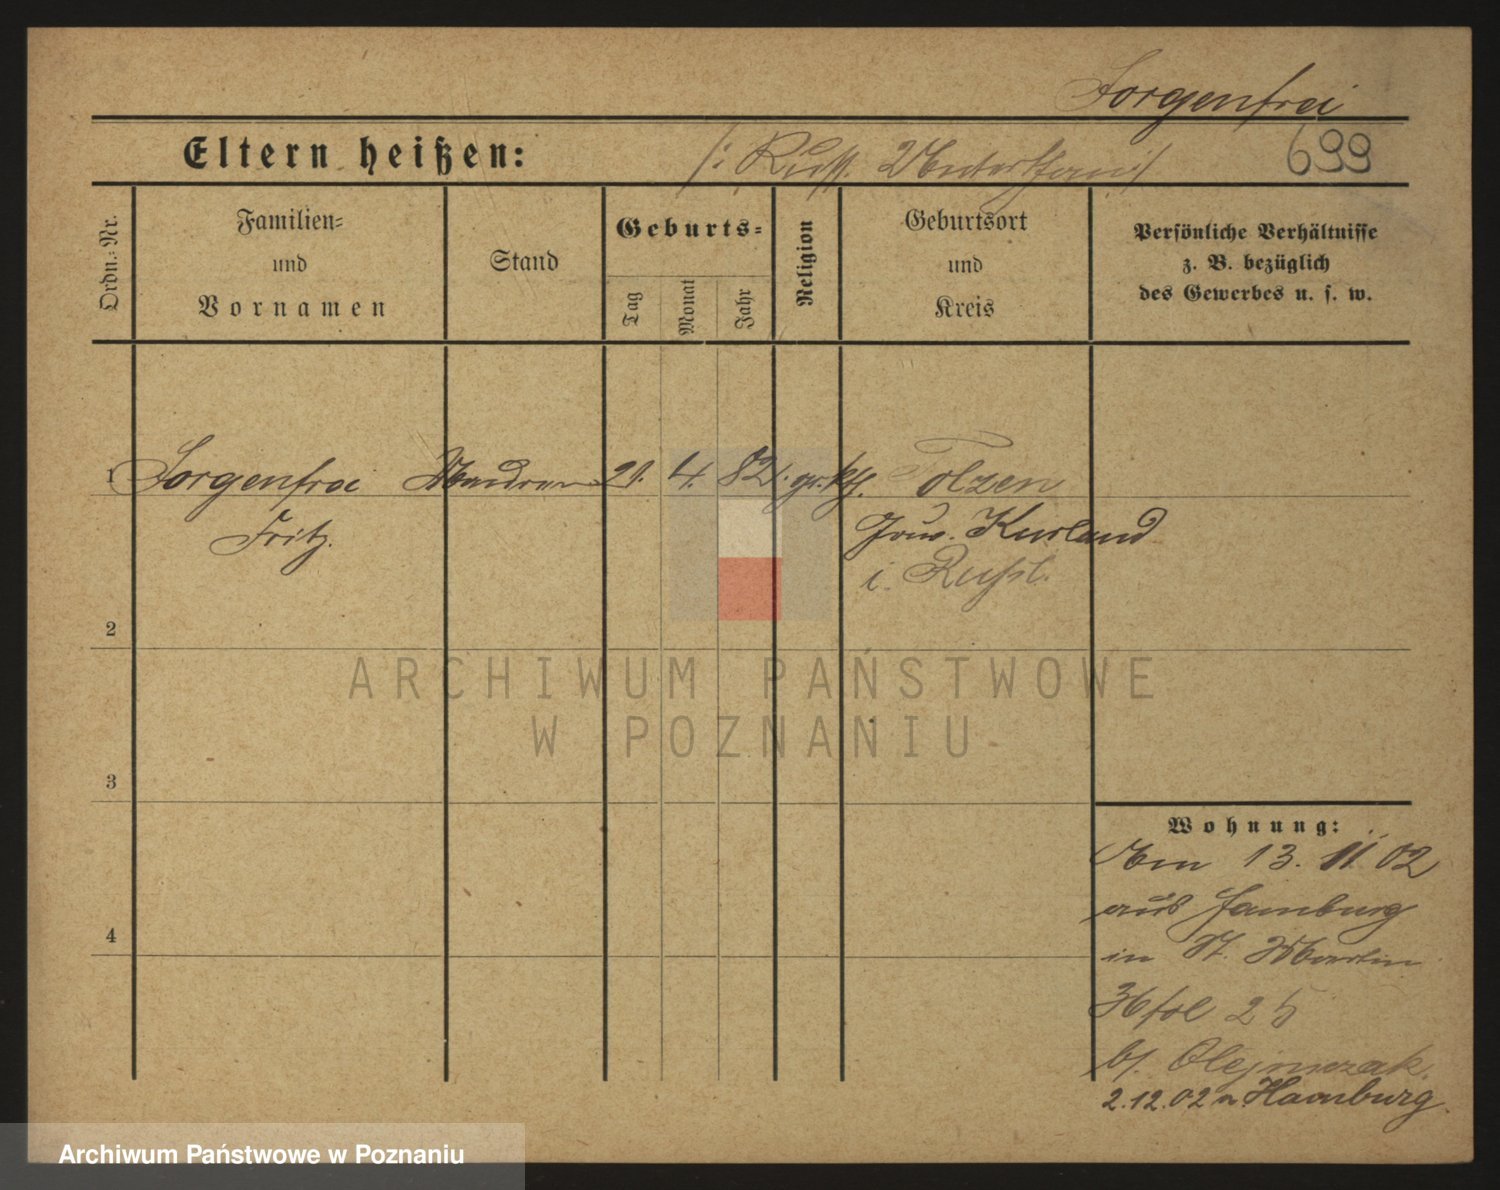 Sorgenfrei
Eltern heißen:
/: Russ. Unterthan :/
699
Ordn.-Nr.
Familien=
und
Vornamen
Stand
Geburts=
Tag
Monat
Jahr
Religion
Geburtsort
und
Kreis
Persönliche Verhältnisse
z. B. bezüglich
des Gewerbes u. s. w.
1 Sorgenfrei 21. 4. 82. gr. kth. Tolzen
Fritz. Gouv. Kurland
i. Russl.
2
ARCHIWUM PAŃSTWOWE
W POZNANIU
3
Wohnung:
Am 13. 11. 02
aus Hamburg
in St. Martin
25
b/. Olejniczak.
4
2.12.02 n. Hamburg.
Archiwum Państwowe w Poznaniu